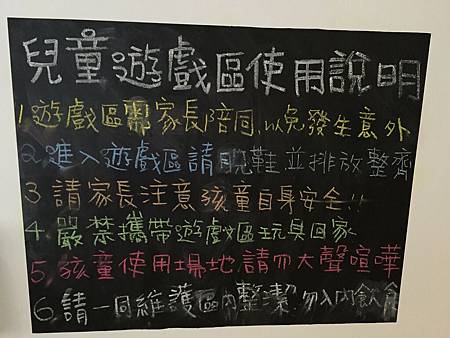 兒童遊戲區使用說明
1.遊戲區需家長陪同,以免發生意外
2.進入遊戲區請脫鞋並排放整齊
3.請家長注意孩童自身安全!!
4.嚴禁攜帶遊戲區玩具回家
5.孩童使用場地請勿大聲喧嘩
6.請一同維護區內整潔.勿入內飲食